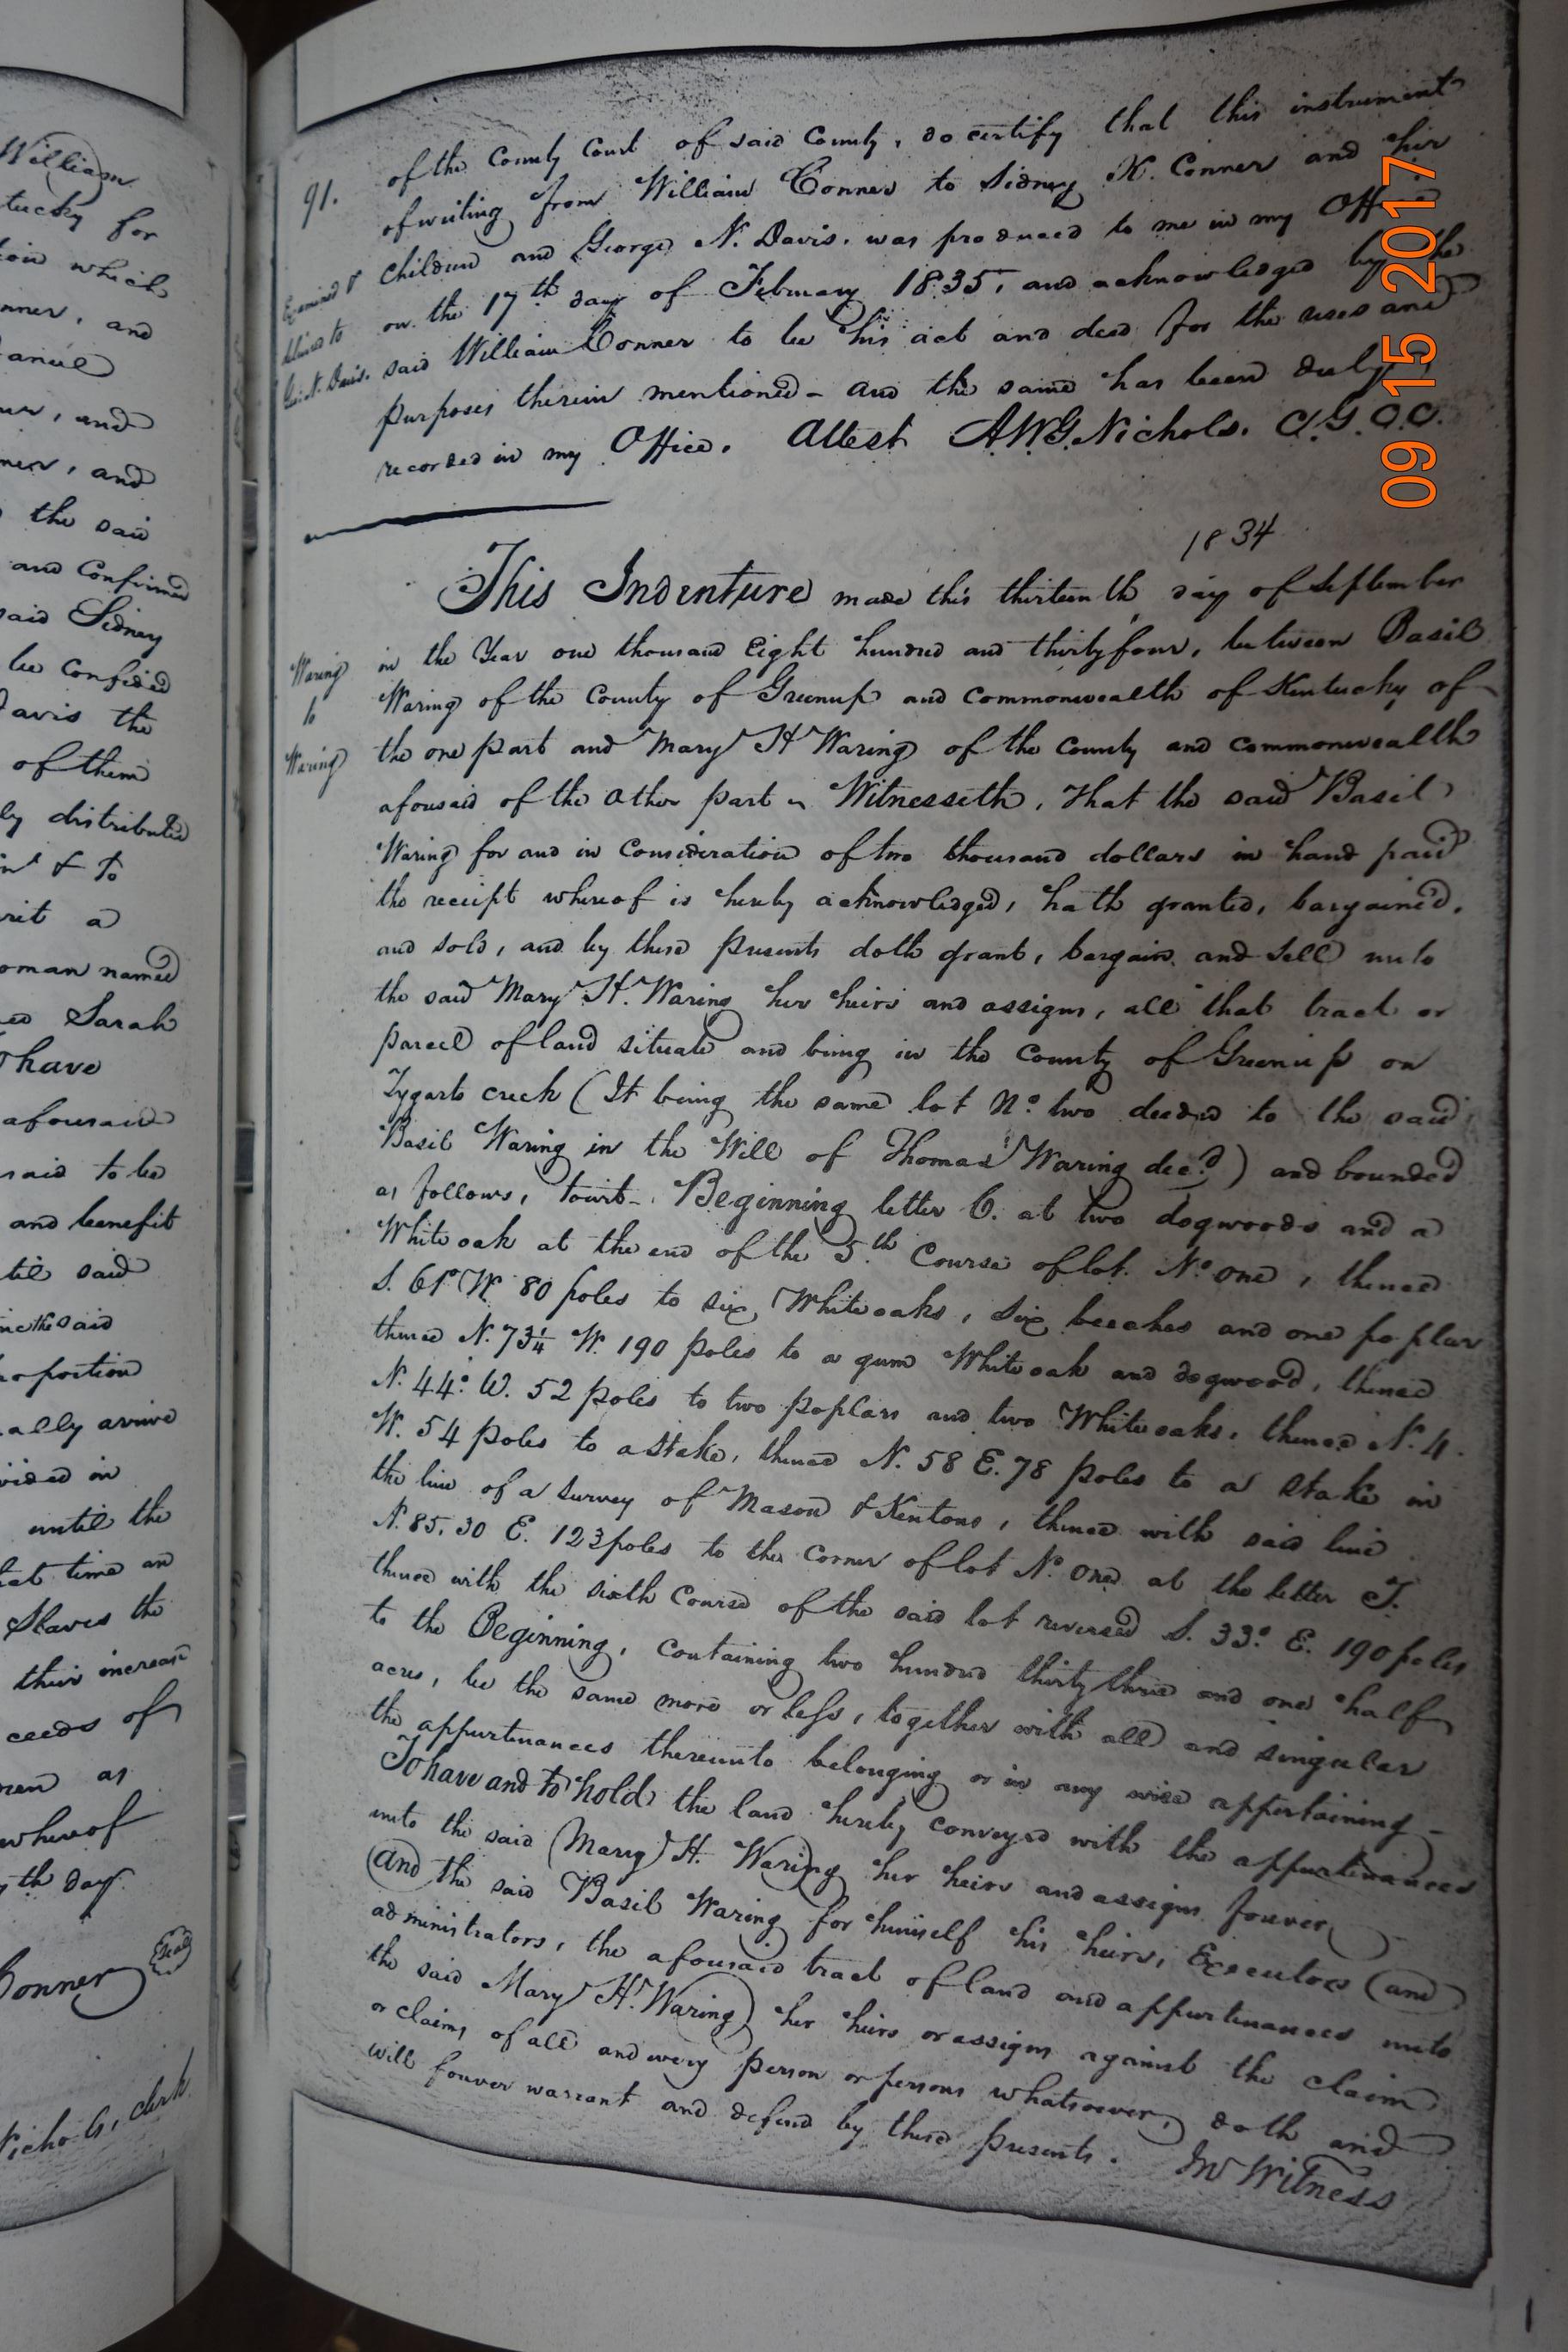 William
tucky for
tion which
nner, and
and
and
the said
and Confirmed
said Sidney
be confided
Davis the
of them
ly distributed
& to
a
woman named
Sarah
have
aforesaid
said to be
and benefit
til said
the said
proportion
ally arrive
vided in
until the
that time an
Slaves the
their increase
ceeds of
as
whereof
th day
Conner
Seal
Nichols, clerk
91.
of the County Court of said County, do certify that this instrument
of writing from William Conner to Sidney K. Conner and his
Children and George N. Davis. was produced to me in my Office
on the 17th day of February 1835, and acknowledged by the
said William Conner to be his act and deed for the uses and
purposes therein mentioned - and the same has been duly
recorded in my Office. Attest A.W.G. Nichols. C.G.C.C.
Examined &
delivered to
Geo. N. Davis.
1834
This Indenture made this thirteenth day of September
in the Year one thousand Eight hundred and thirtyfour, between Basil
Waring of the County of Greenup and commonwealth of Kentucky of
the one part and Mary H Waring of the County and commonwealth
aforesaid of the other part Witnesseth, That the said Basil
Waring for and in Consideration of two thousand dollars in hand paid
the receipt whereof is hereby acknowledged, hath granted, bargained,
and sold, and by these Presents doth grant, bargain and sell unto
the said Mary H. Waring her heirs and assigns, all that tract or
parcel of land situate and being in the County of Greenup on
Tygarts creek (It being the same lot No. two deeded to the said
Basil Waring in the Will of Thomas Waring decd.) and bounded
as follows, towit - Beginning letter C. at two dogwoods and a
White oak at the end of the 5th Course of lot No. one, thence
S. 61° W. 80 poles to six White oaks, six beeches and one poplar
thence N. 73¼ W. 190 poles to a gum White oak and dogwood, thence
N. 44° W. 52 poles to two poplars and two White oaks, thence N. 4.
W. 54 poles to a Stake, thence N. 58 E. 78 poles to a Stake in
the line of a Survey of Mason & Kentons, thence with said line
N. 85. 30 E. 123 poles to the Corner of lot No. One at the letter T.
thence with the sixth Course of the said lot reversed S. 33° E. 190 poles
to the Beginning, containing two hundred thirty three and one half
acres, be the same more or less, together with all and singular
the appurtenances thereunto belonging or in any wise appertaining -
To have and to hold the land hereby conveyed with the appurtenances
unto the said Mary H. Waring her heirs and assigns forever
and the said Basil Waring for himself his heirs, Executors and
administrators, the aforesaid tract of land and appurtenances unto
the said Mary H. Waring her heirs or assigns against the claim
or claims of all and every person or persons whatsoever, doth and
will forever warrant and defend by these presents. In Witness
Waring
to
Waring
09 15 2017